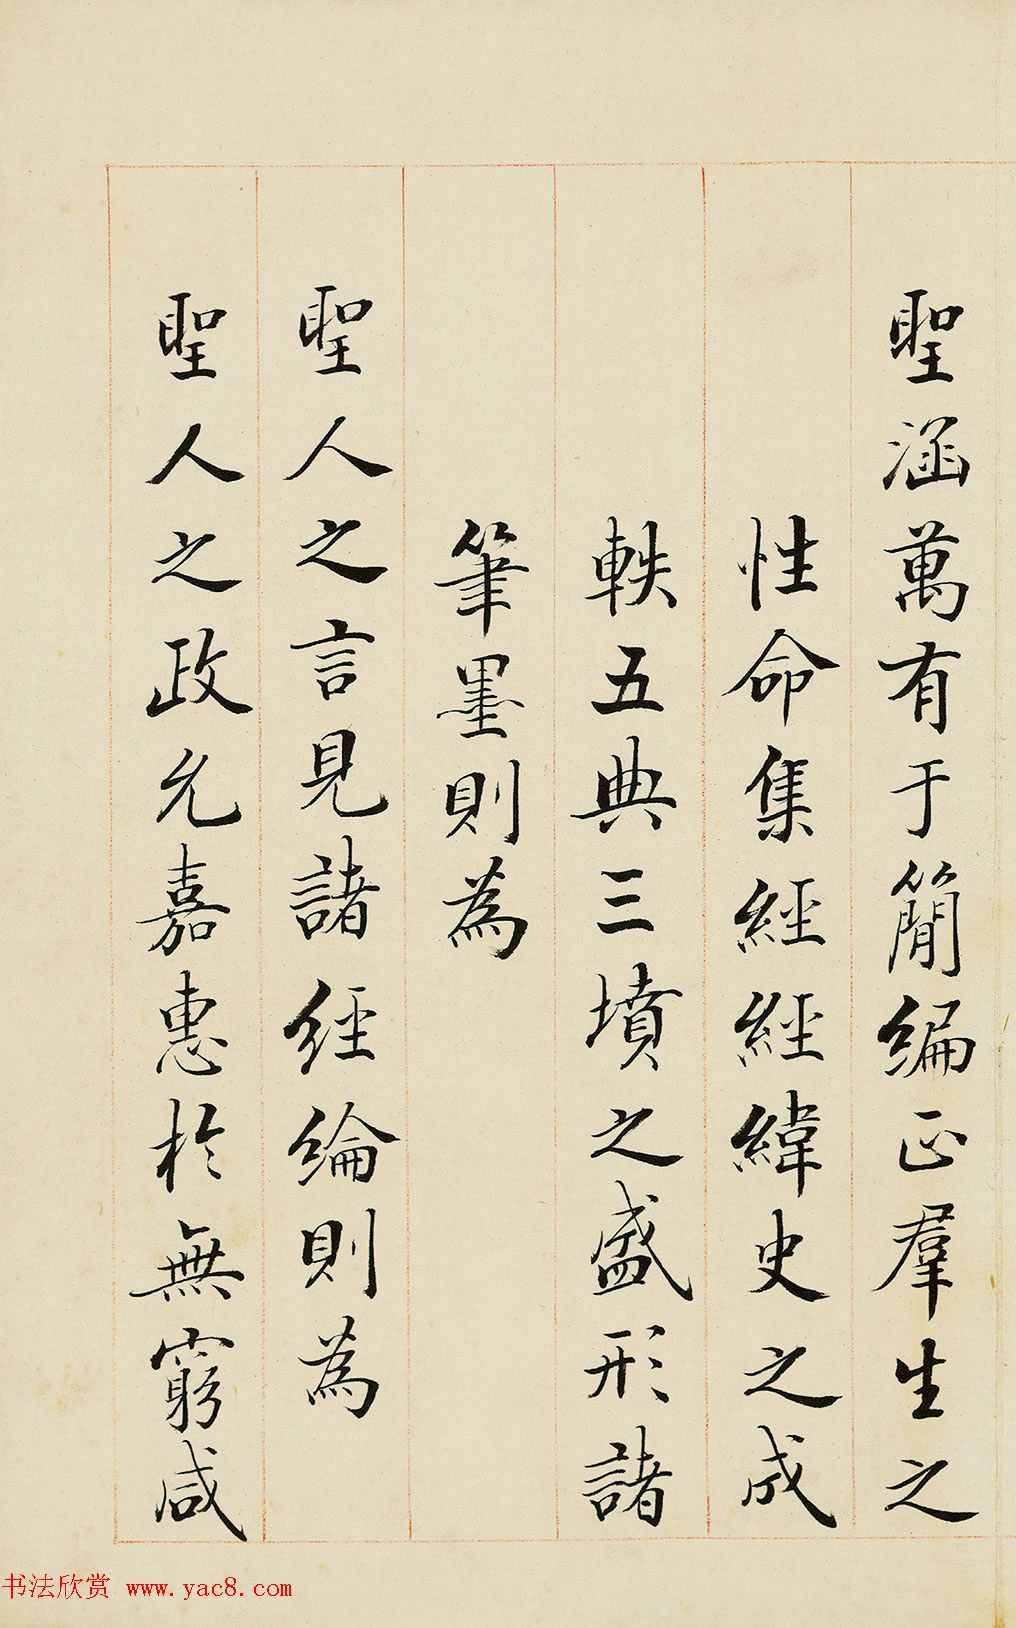 聖涵萬有于簡編正羣生之
性命集經經緯史之成
軼五典三墳之盛形諸
筆墨則為
聖人之言見諸經綸則為
聖人之政允嘉惠於無窮咸
书法欣赏 www.yac8.com